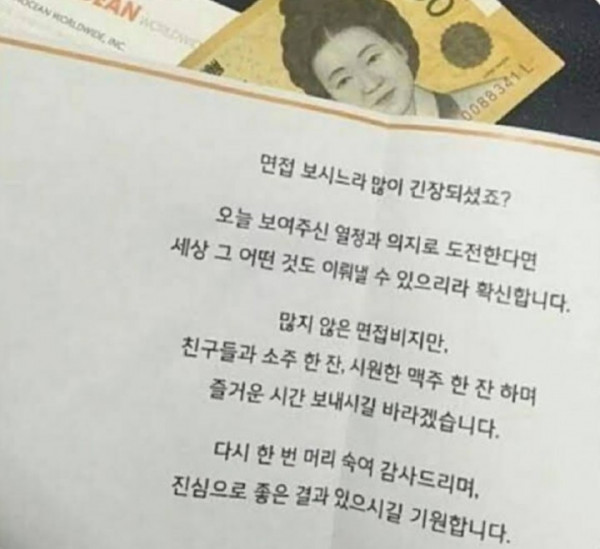 EAN WORLDWIDE
OCEAN WORLDWIDE, INC.
0088341 L
면접 보시느라 많이 긴장되셨죠?
오늘 보여주신 열정과 의지로 도전한다면
세상 그 어떤 것도 이뤄낼 수 있으리라 확신합니다.
많지 않은 면접비지만,
친구들과 소주 한 잔, 시원한 맥주 한 잔 하며
즐거운 시간 보내시길 바라겠습니다.
다시 한 번 머리 숙여 감사드리며,
진심으로 좋은 결과 있으시길 기원합니다.